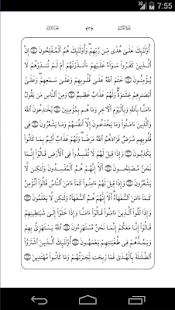 7:55
أُوْلَٰٓئِكَ عَلَىٰ هُدٗى مِّن رَّبِّهِمۡۖ وَأُوْلَٰٓئِكَ هُمُ ٱلۡمُفۡلِحُونَ ۝ إِنَّ
ٱلَّذِينَ كَفَرُواْ سَوَآءٌ عَلَيۡهِمۡ ءَأَنذَرۡتَهُمۡ أَمۡ لَمۡ تُنذِرۡهُمۡ لَا
يُؤۡمِنُونَ ۝ خَتَمَ ٱللَّهُ عَلَىٰ قُلُوبِهِمۡ وَعَلَىٰ سَمۡعِهِمۡۖ وَعَلَىٰٓ
أَبۡصَٰرِهِمۡ غِشَٰوَةٞۖ وَلَهُمۡ عَذَابٌ عَظِيمٞ ۝ وَمِنَ ٱلنَّاسِ مَن يَقُولُ
ءَامَنَّا بِٱللَّهِ وَبِٱلۡيَوۡمِ ٱلۡأٓخِرِ وَمَا هُم بِمُؤۡمِنِينَ ۝ يُخَٰدِعُونَ ٱللَّهَ
وَٱلَّذِينَ ءَامَنُواْ وَمَا يَخۡدَعُونَ إِلَّآ أَنفُسَهُمۡ وَمَا يَشۡعُرُونَ ۝ فِي
قُلُوبِهِم مَّرَضٞ فَزَادَهُمُ ٱللَّهُ مَرَضٗاۖ وَلَهُمۡ عَذَابٌ أَلِيمُۢ بِمَا كَانُواْ
يَكۡذِبُونَ ۝ وَإِذَا قِيلَ لَهُمۡ لَا تُفۡسِدُواْ فِي ٱلۡأَرۡضِ قَالُوٓاْ إِنَّمَا
نَحۡنُ مُصۡلِحُونَ ۝ أَلَآ إِنَّهُمۡ هُمُ ٱلۡمُفۡسِدُونَ وَلَٰكِن لَّا يَشۡعُرُونَ
۝ وَإِذَا قِيلَ لَهُمۡ ءَامِنُواْ كَمَآ ءَامَنَ ٱلنَّاسُ قَالُوٓاْ أَنُؤۡمِنُ
كَمَآ ءَامَنَ ٱلسُّفَهَآءُۗ أَلَآ إِنَّهُمۡ هُمُ ٱلسُّفَهَآءُ وَلَٰكِن لَّا يَعۡلَمُونَ
۝ وَإِذَا لَقُواْ ٱلَّذِينَ ءَامَنُواْ قَالُوٓاْ ءَامَنَّا وَإِذَا خَلَوۡاْ إِلَىٰ شَيَٰطِينِهِمۡ
قَالُوٓاْ إِنَّا مَعَكُمۡ إِنَّمَا نَحۡنُ مُسۡتَهۡزِءُونَ ۝ ٱللَّهُ يَسۡتَهۡزِئُ بِهِمۡ
وَيَمُدُّهُمۡ فِي طُغۡيَٰنِهِمۡ يَعۡمَهُونَ ۝ أُوْلَٰٓئِكَ ٱلَّذِينَ ٱشۡتَرَوُاْ
ٱلضَّلَٰلَةَ بِٱلۡهُدَىٰ فَمَا رَبِحَت تِّجَٰرَتُهُمۡ وَمَا كَانُواْ مُهۡتَدِينَ ۝